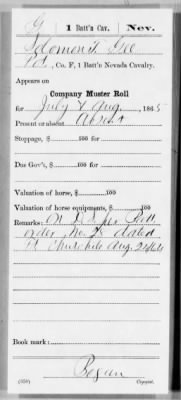 G | 1 Batt'n Cav. | Nev.
Solomon F. Gee
Pvt., Co. F, 1 Batt'n Nevada Cavalry.
Appears on
Company Muster Roll
for July & Aug., 1865
Present or absent Absent
Stoppage, $ 100 for
Due Gov't, $ 100 for
Valuation of horse, $ 100
Valuation of horse equipments, $ 100
Remarks: On D. S. per Batt
order No 28 dated
Ft Churchill Aug 24/65
Book mark:
Began
(358) Copyist.